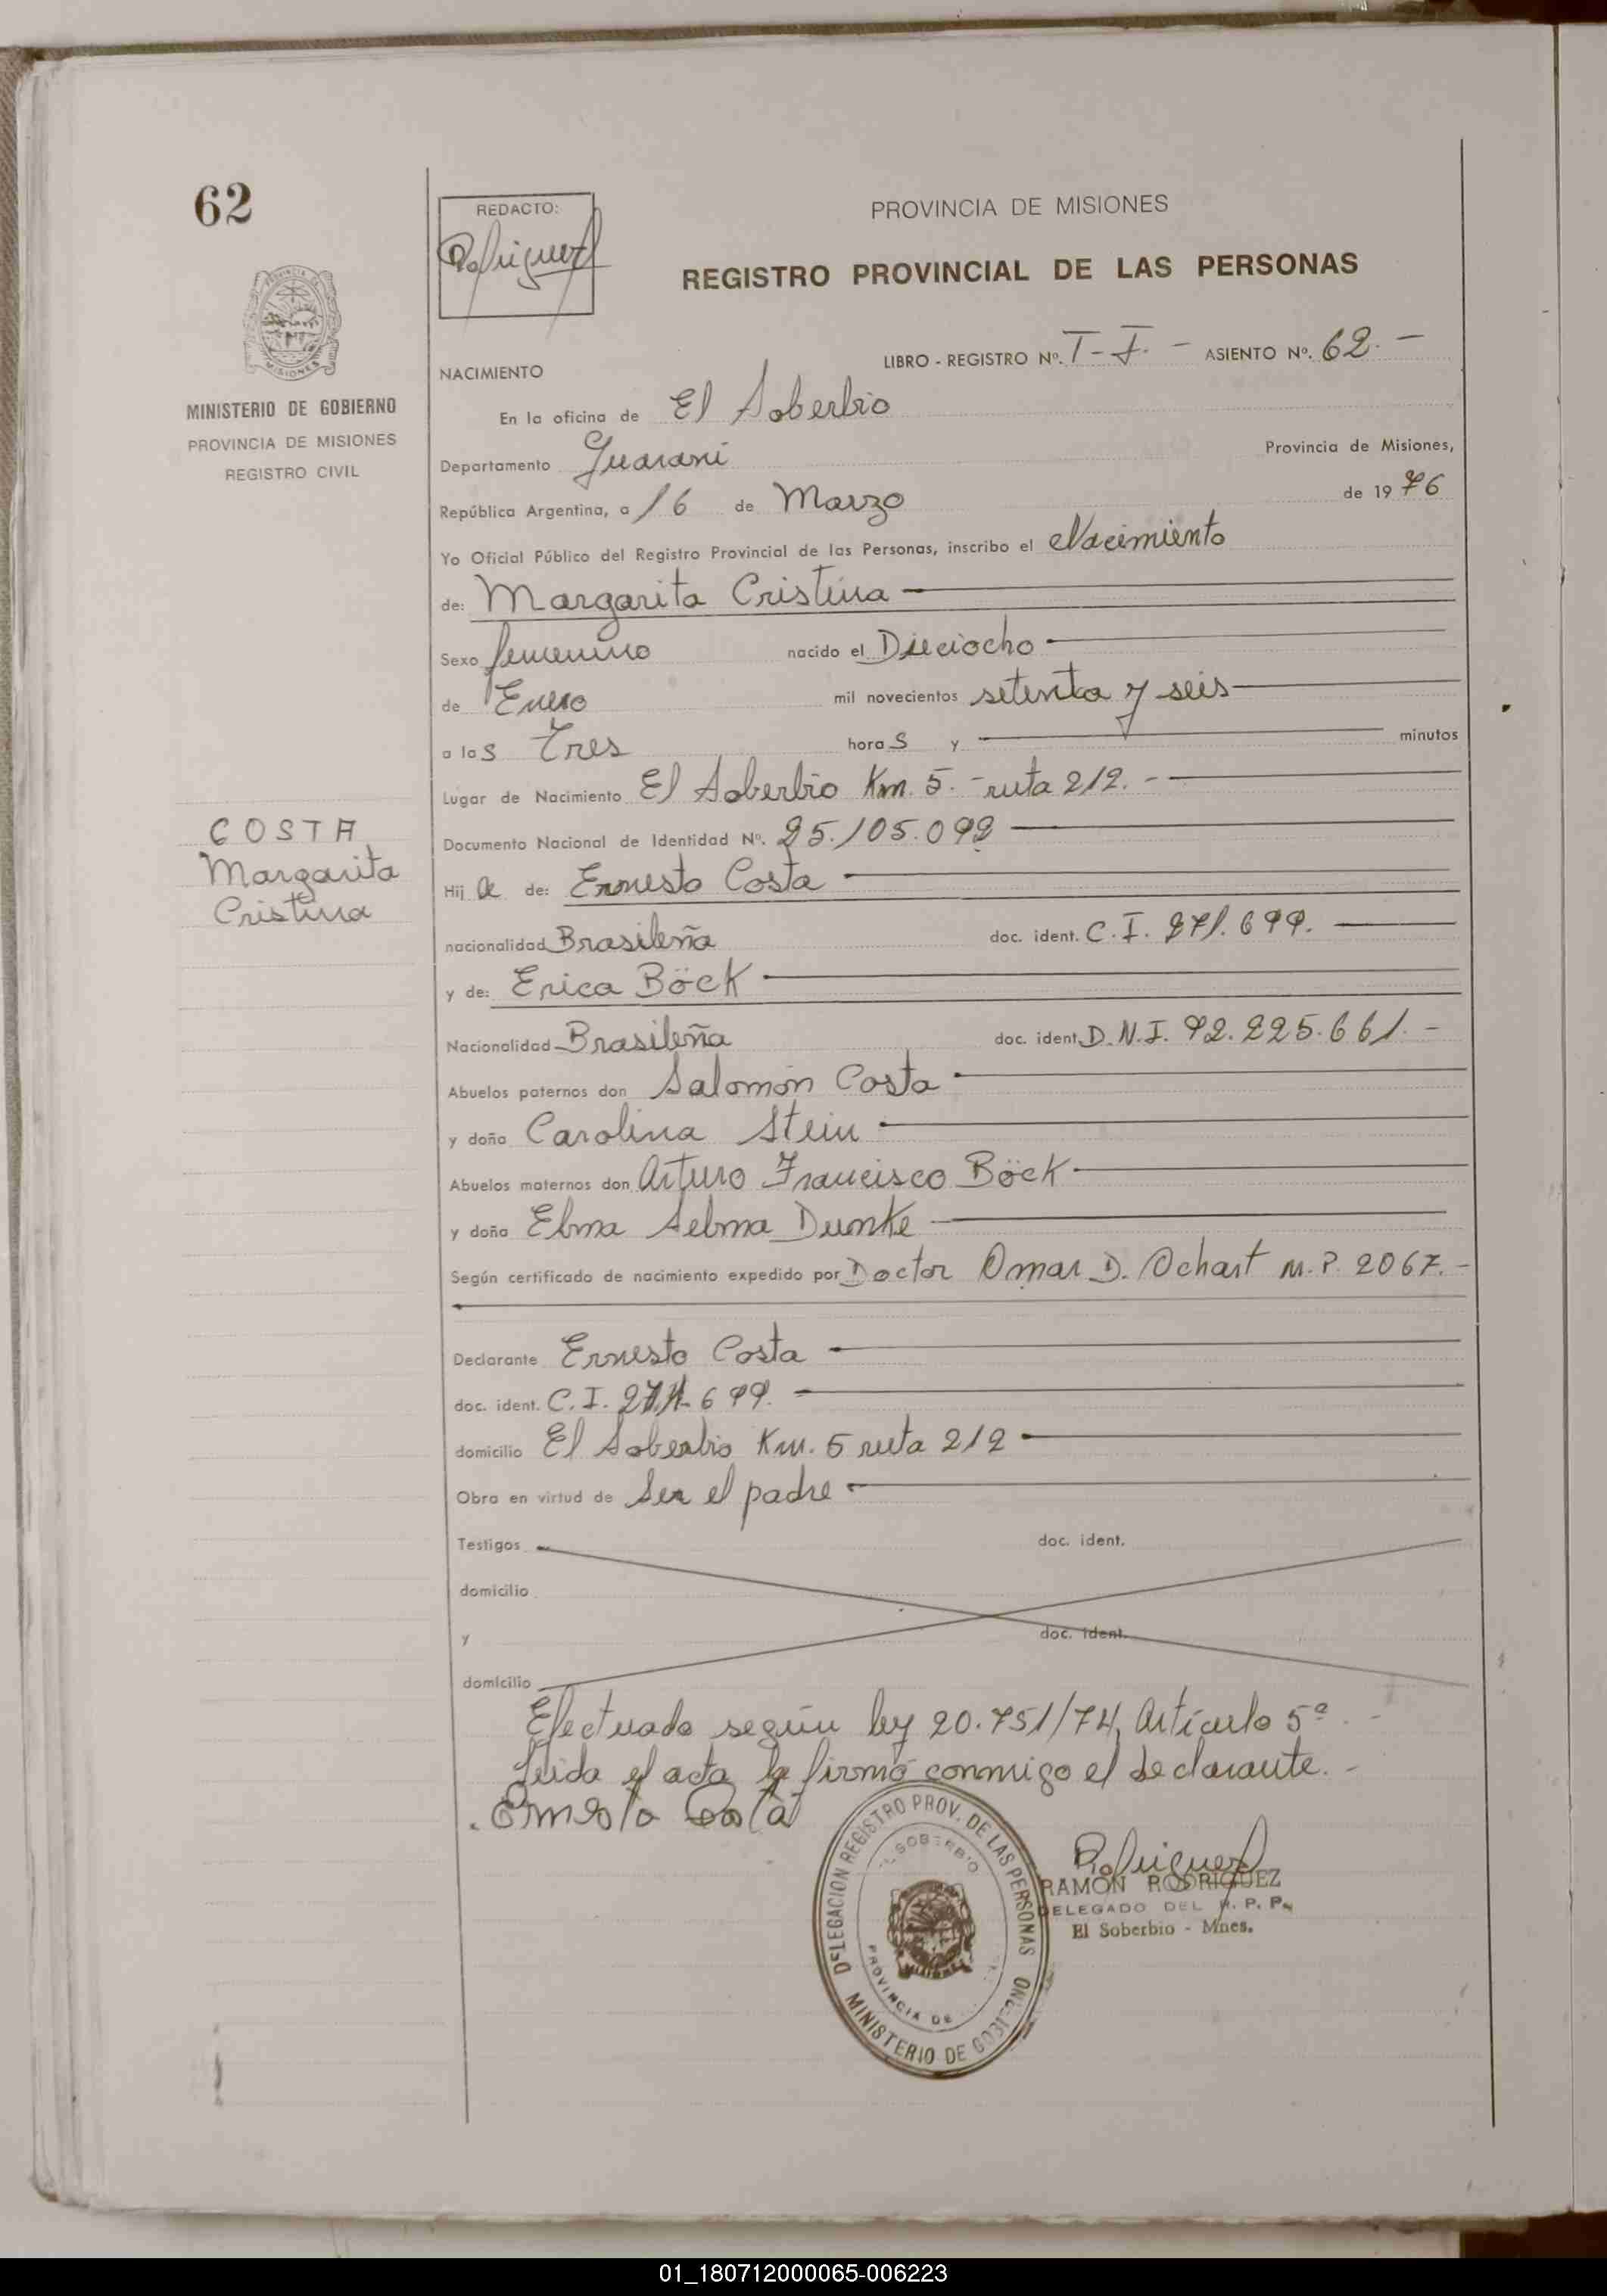 62
REDACTO:
Rodriguez
PROVINCIA DE MISIONES
REGISTRO PROVINCIAL DE LAS PERSONAS
MISIONES
MINISTERIO DE GOBIERNO
PROVINCIA DE MISIONES
REGISTRO CIVIL
LIBRO - REGISTRO Nº. T-I. - ASIENTO Nº. 62. -
NACIMIENTO
En la oficina de El Soberbio
Departamento Guaraní Provincia de Misiones,
República Argentina, a 16 de Marzo de 1976
Yo Oficial Público del Registro Provincial de las Personas, inscribo el Nacimiento
de: Margarita Cristina
Sexo femenino nacido el Dieciocho
de Enero mil novecientos setenta y seis
a las Tres horas y minutos
Lugar de Nacimiento El Soberbio Km. 5. - ruta 212. -
COSTA
Margarita
Cristina
Documento Nacional de Identidad Nº. 25.105.092
Hija de: Ernesto Costa
nacionalidad Brasileña doc. ident. C.I. 271.699.
y de: Erica Böck
Nacionalidad Brasileña doc. ident. D.N.I. 92.225.661. -
Abuelos paternos don Salomón Costa
y doña Carolina Stein
Abuelos maternos don Arturo Francisco Böck
y doña Elma Selma Dumke
Según certificado de nacimiento expedido por Doctor Omar D. Ochart M.P. 2067. -
Declarante Ernesto Costa
doc. ident. C.I. 271.699.
domicilio El Soberbio Km. 5 ruta 212
Obra en virtud de Ser el padre
Testigos doc. ident.
domicilio
y doc. ident.
domicilio
Efectuado según ley 20.751/74, Artículo 5º. -
Leida el acta la firmó conmigo el declarante. -
Ernesto Costa
DELEGACION REGISTRO PROV. DE LAS PERSONAS
EL SOBERBIO
PROVINCIA DE
MINISTERIO DE GOBIERNO
Rodriguez
RAMÓN RODRIGUEZ
DELEGADO DEL R. P. P.
El Soberbio - Mnes.
01_180712000065-006223